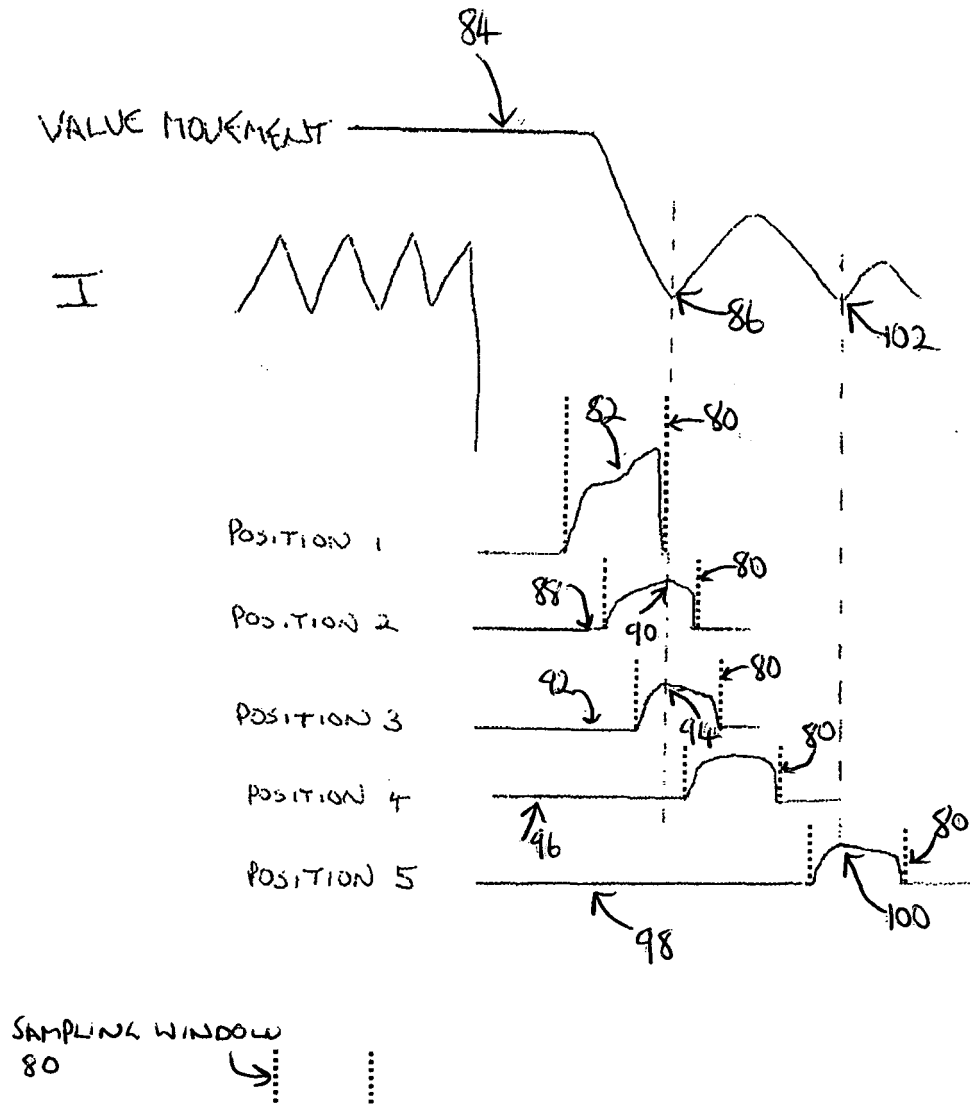 84
VALUE MOVEMENT
I
86
102
82
80
POSITION 1
88
80
POSITION 2
90
92
80
POSITION 3
94
80
POSITION 4
96
80
POSITION 5
100
98
SAMPLING WINDOW
80